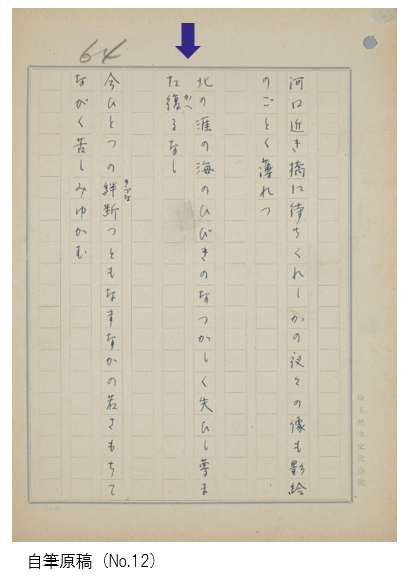 64
河口近き橋に待ちくれしかの夜々の像も影絵
のごとく薄れつ
北の涯の海のひびきのなつかしく失ひし夢ま
かへ
た復るなし
きづな
今ひとつの絆断つともなまなかの若さもちて
ながく苦しみゆかむ
埼玉県立文化会館
自筆原稿（No.12）